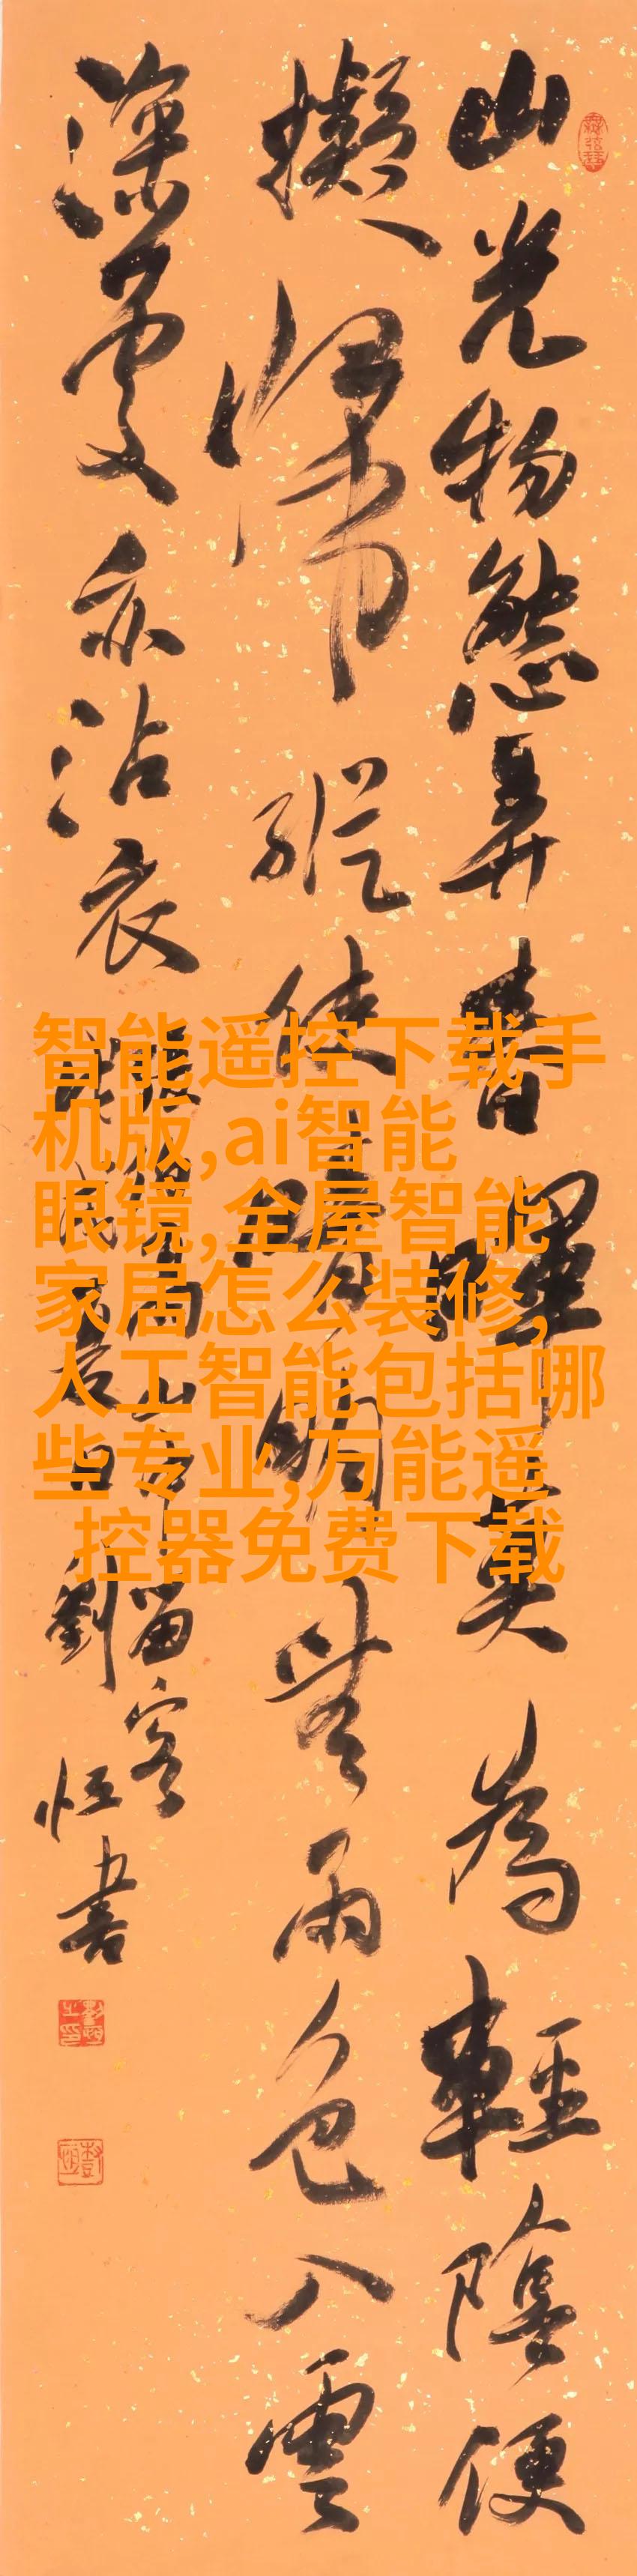 山光物態弄春暉莫為輕陰便
擬歸縱使晴明無雨色入雲
深處亦沾衣
山中留客
劉恒書
智能遥控下载手
机版,ai智能
眼镜,全屋智能
家居怎么装修,
人工智能包括哪
些专业,万能遥
控器免费下载